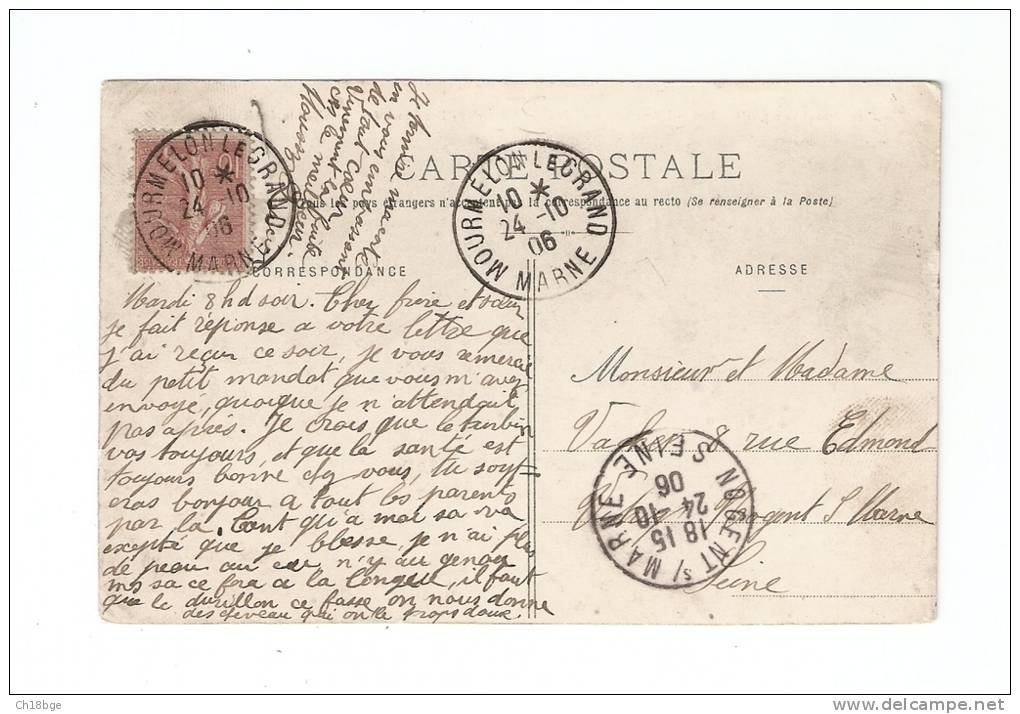 CARTE POSTALE
Tous les pays étrangers n'acceptent pas la correspondance au recto (Se renseigner à la Poste)
CORRESPONDANCE
ADRESSE
MOURMELON LE GRAND
10 *
24 -10
06
MARNE
MOURMELON LE GRAND
10 *
24 -10
06
MARNE
Je termine
en vous embrassant
de tout cœur
Mardi 8 h d soir. Cher frère et sœur
je fait réponse a votre lettre que
j'ai reçu ce soir, je vous remercie
du petit mandat que vous m'avez
envoyé, quoique je n'attendait
pas après. Je crois que le turbin
vas toujours, et que la santé est
toujours bonne chez vous, tu soy=
eras bonjour a tout les parents
par la. Tent qu'a moi sa va
excepté que je blesse, je n'ai plus
de peau au n'y au genou
mes sa ce fera a la longue, il faut
que le durillon ce fasse on nous donne
des cheveau qui on le trops doux
Monsieur et Madame
8 rue Edmond
Nogent S/Marne
Seine
NOGENT s/ MARNE
18 15
24 10
06
SEINE
Ch18bge
delcampe.net